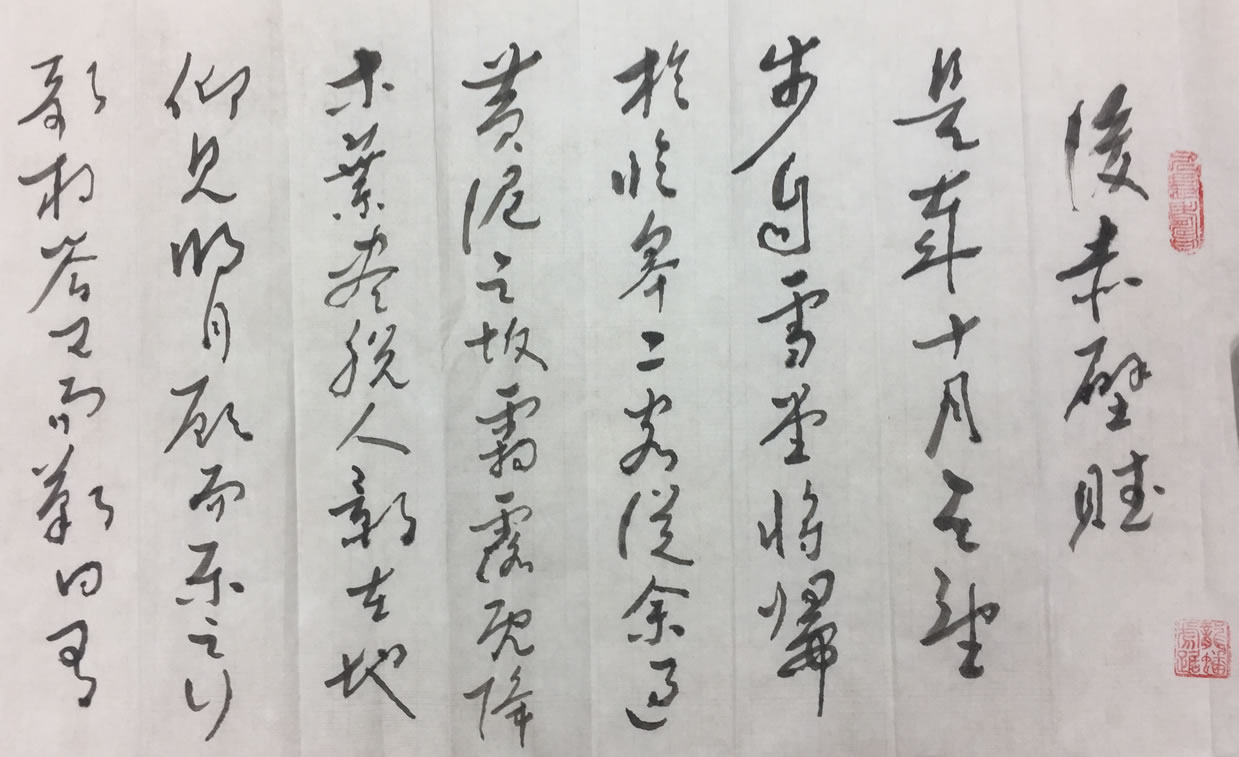 後赤壁賦
是年十月之望
步自雪堂將歸
於臨皋二客從余過
黃泥之坂霜露既降
木葉盡脫人影在地
仰見明月顧而樂之行
歌相答已而歎曰有
龍蟠虎踞